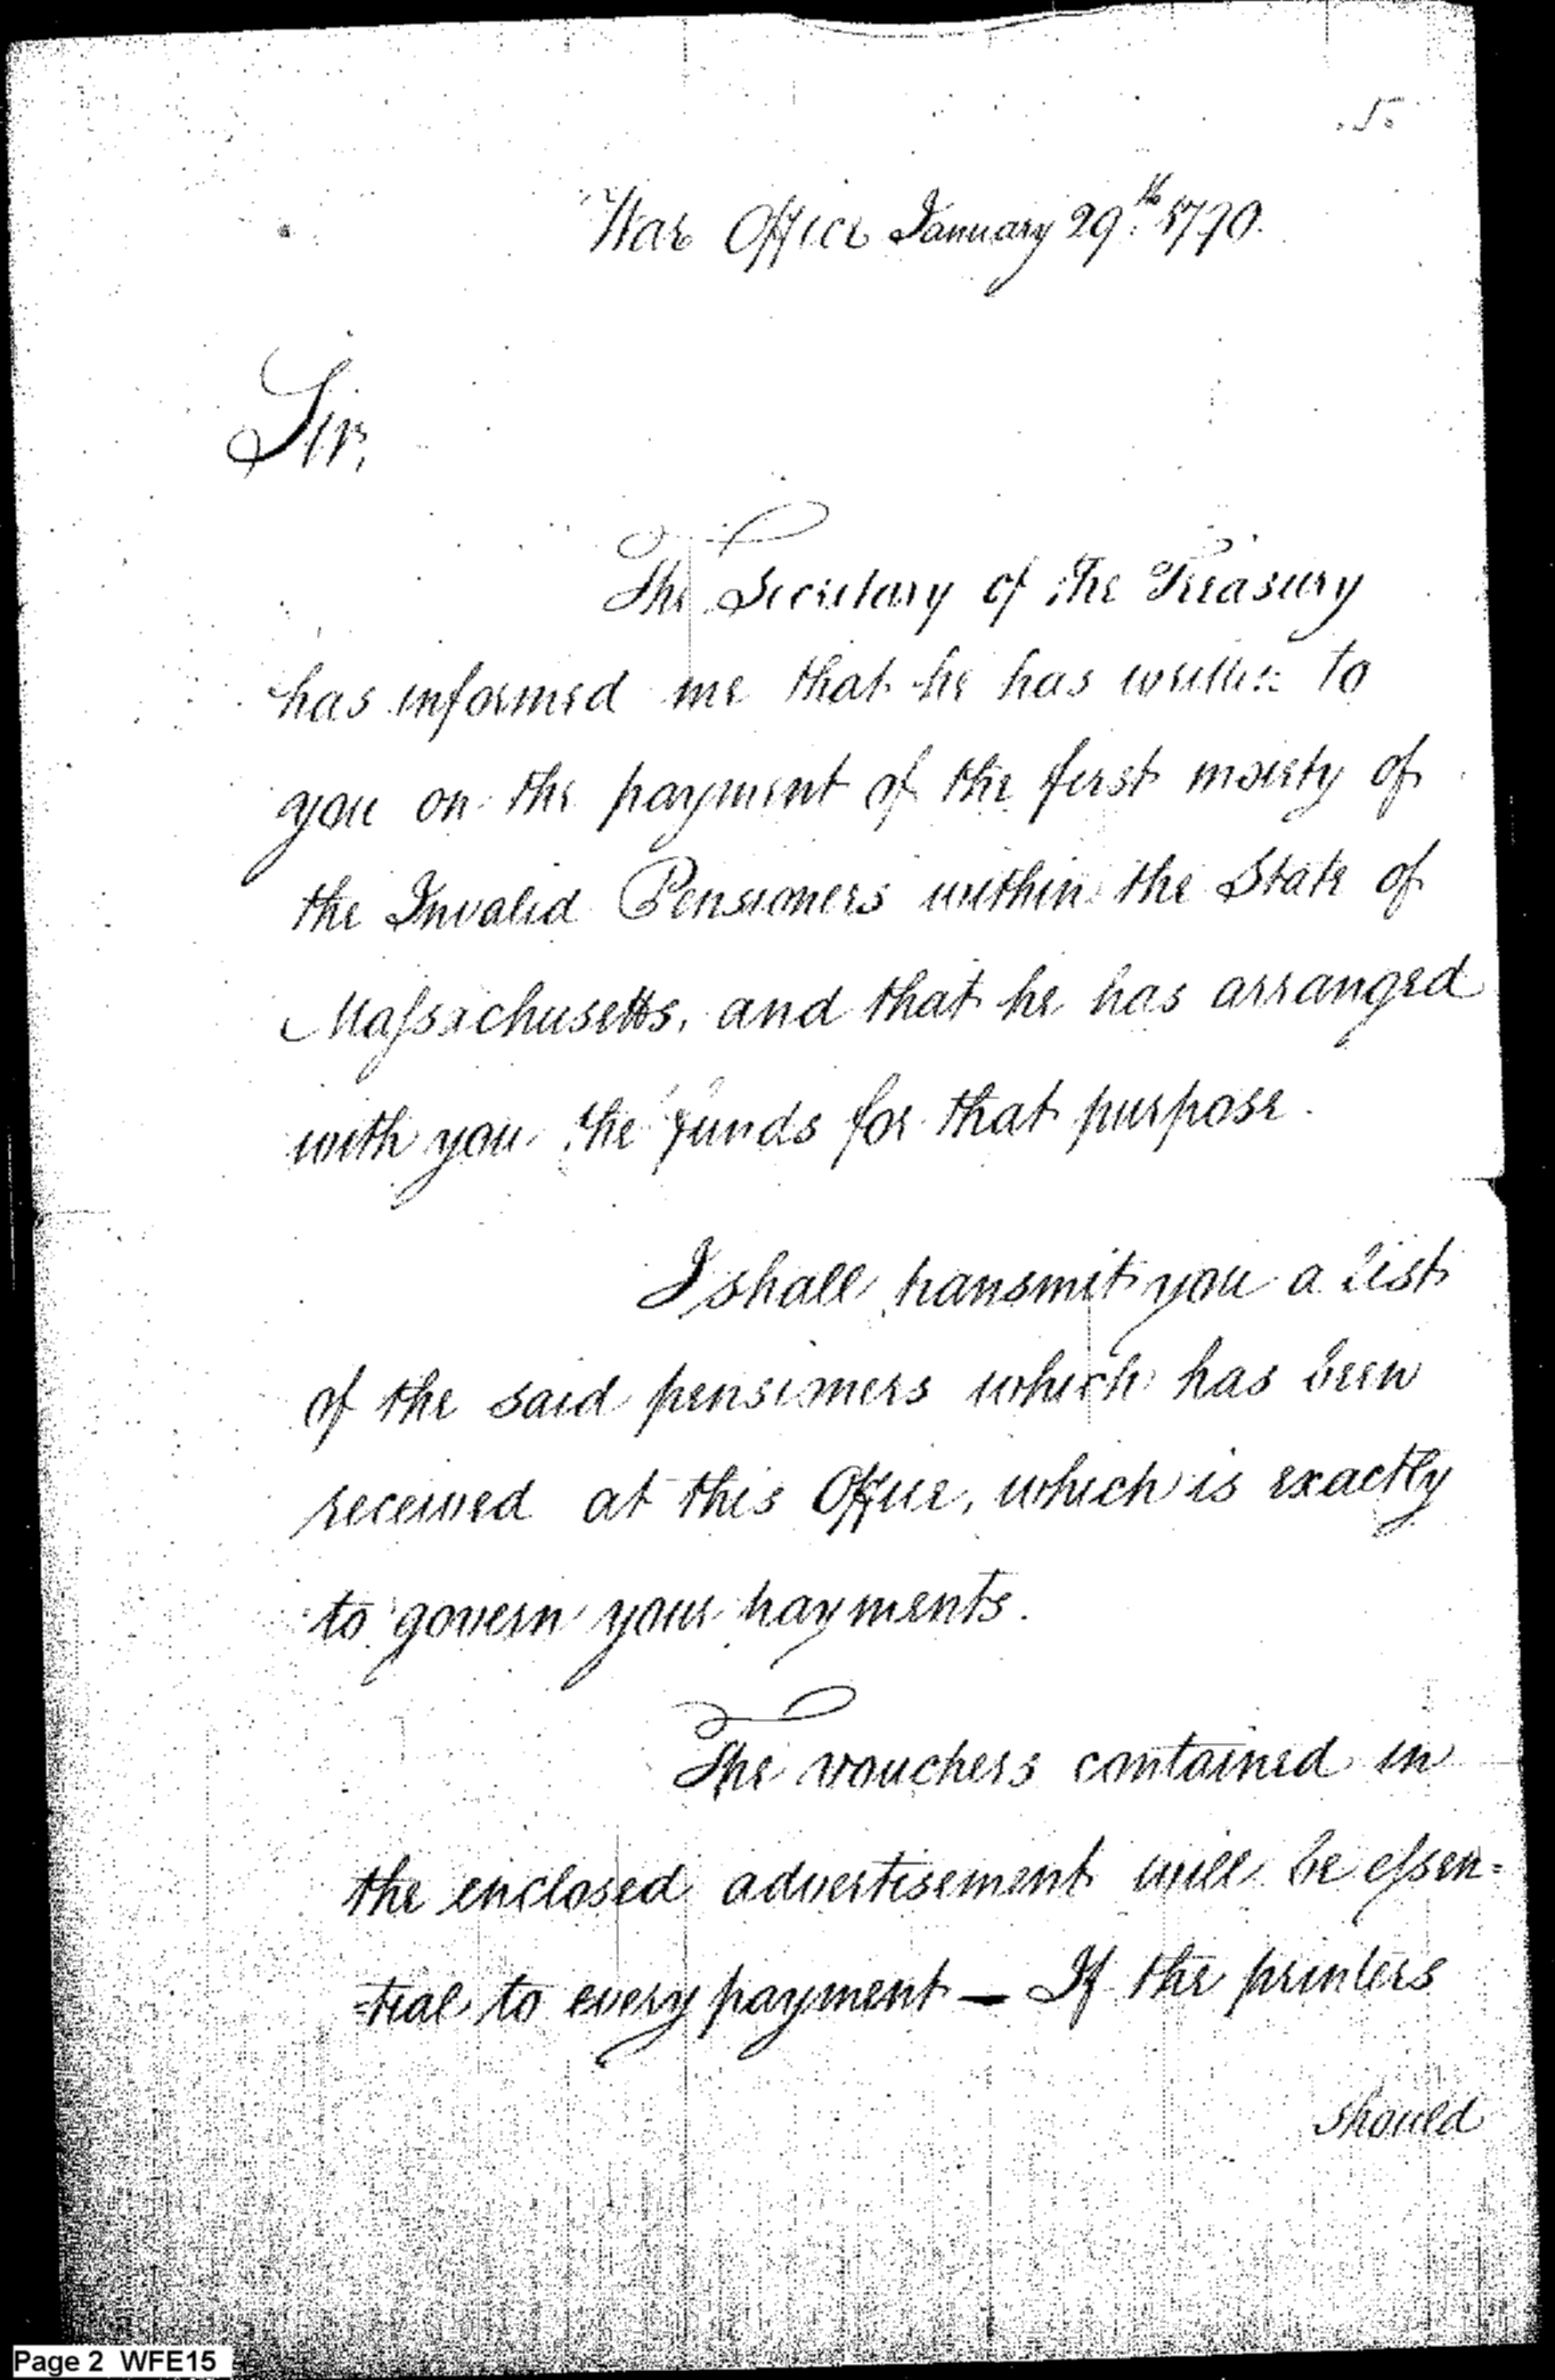 War Office January 29.th 1790.
Sir,
The Secretary of the Treasury
has informed me that he has written to
you on the payment of the first moiety of
the Invalid Pensioners within the State of
Maſsachusetts, and that he has arranged
with you the funds for that purpose.
I shall transmit you a List
of the said pensioners which has been
received at this Office, which is exactly
to govern your payments.
The vouchers contained in
the enclosed advertisement will be eſsen=
=tial to every payment — If the printers
should
Page 2 WFE15